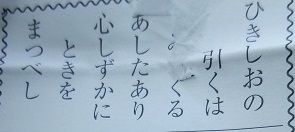 ひきしおの
引くは
くる
あしたあり
心しずかに
ときを
まつべし